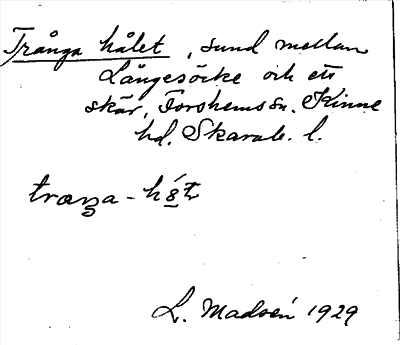 Trånga hålet, sund mellan
Långesöcke och ett
skär, Forshems sn. Kinne
hd. Skarab. l.
L. Madsén 1929